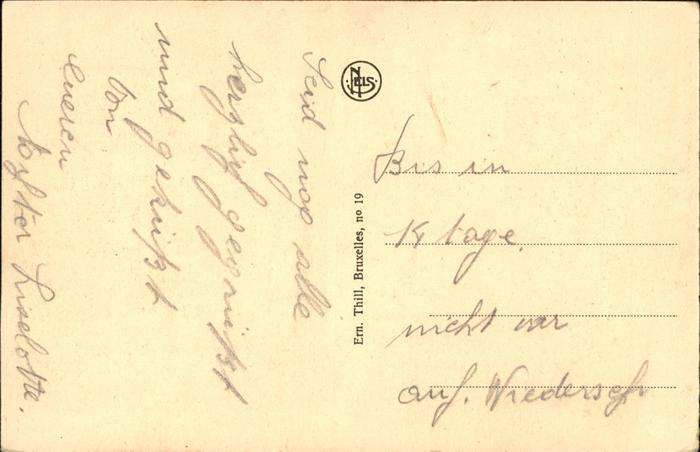 Seid nog alle
herzlich gegrüßt
und geküßt
von
Eueren
Liselotte.
NELS
Ern. Thill, Bruxelles, nº 19
Bis in
14 tage.
nicht war
auf. Wiedersehn